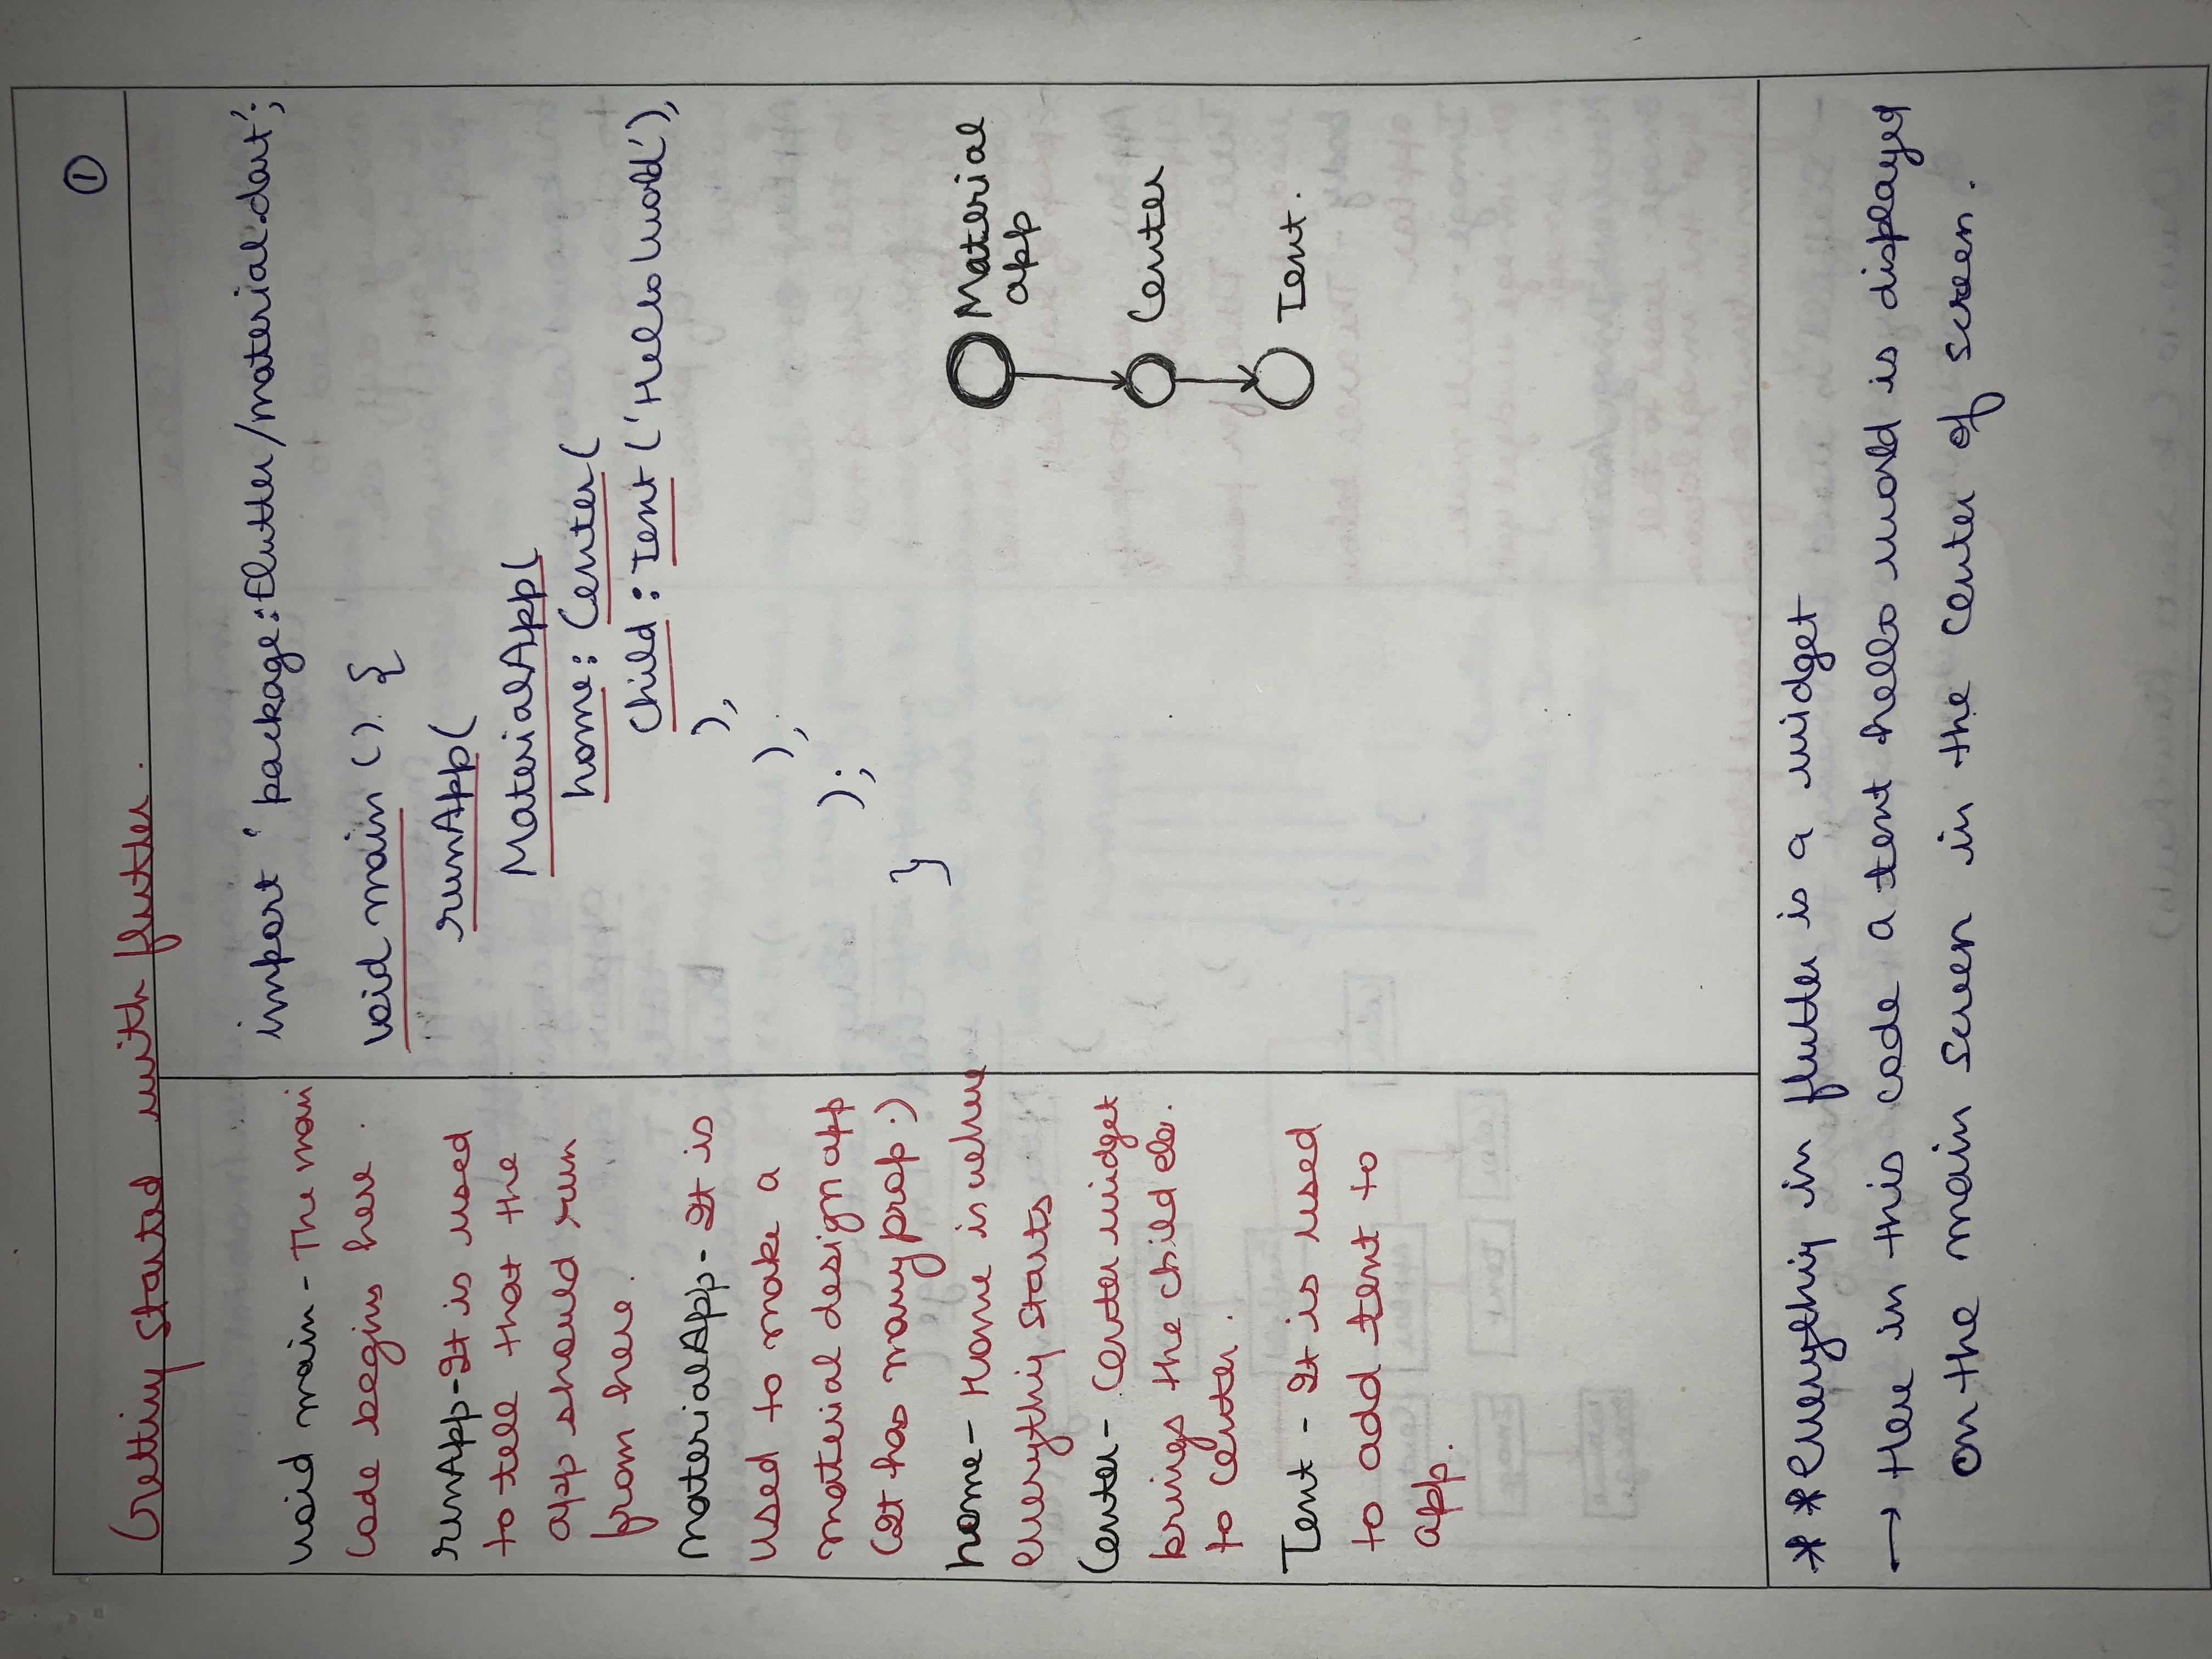 ①
Getting started with flutter.
void main - The main
code begins here.
runApp - It is used
to tell that the
app should run
from here.
MaterialApp - It is
used to make a
material design app
(It has many prop.)
home - Home is where
everything starts
Center - Center widget
brings the child ele.
to center.
Text - It is used
to add text to
app.
import 'package:flutter/material.dart';
void main () {
runApp(
MaterialApp(
home: Center(
child: Text('Hello World'),
),
),
);
}
Material
app
Center
Text.
** everything in flutter is a widget
→ Here in this code a text hello world is displayed
on the main screen in the center of screen.